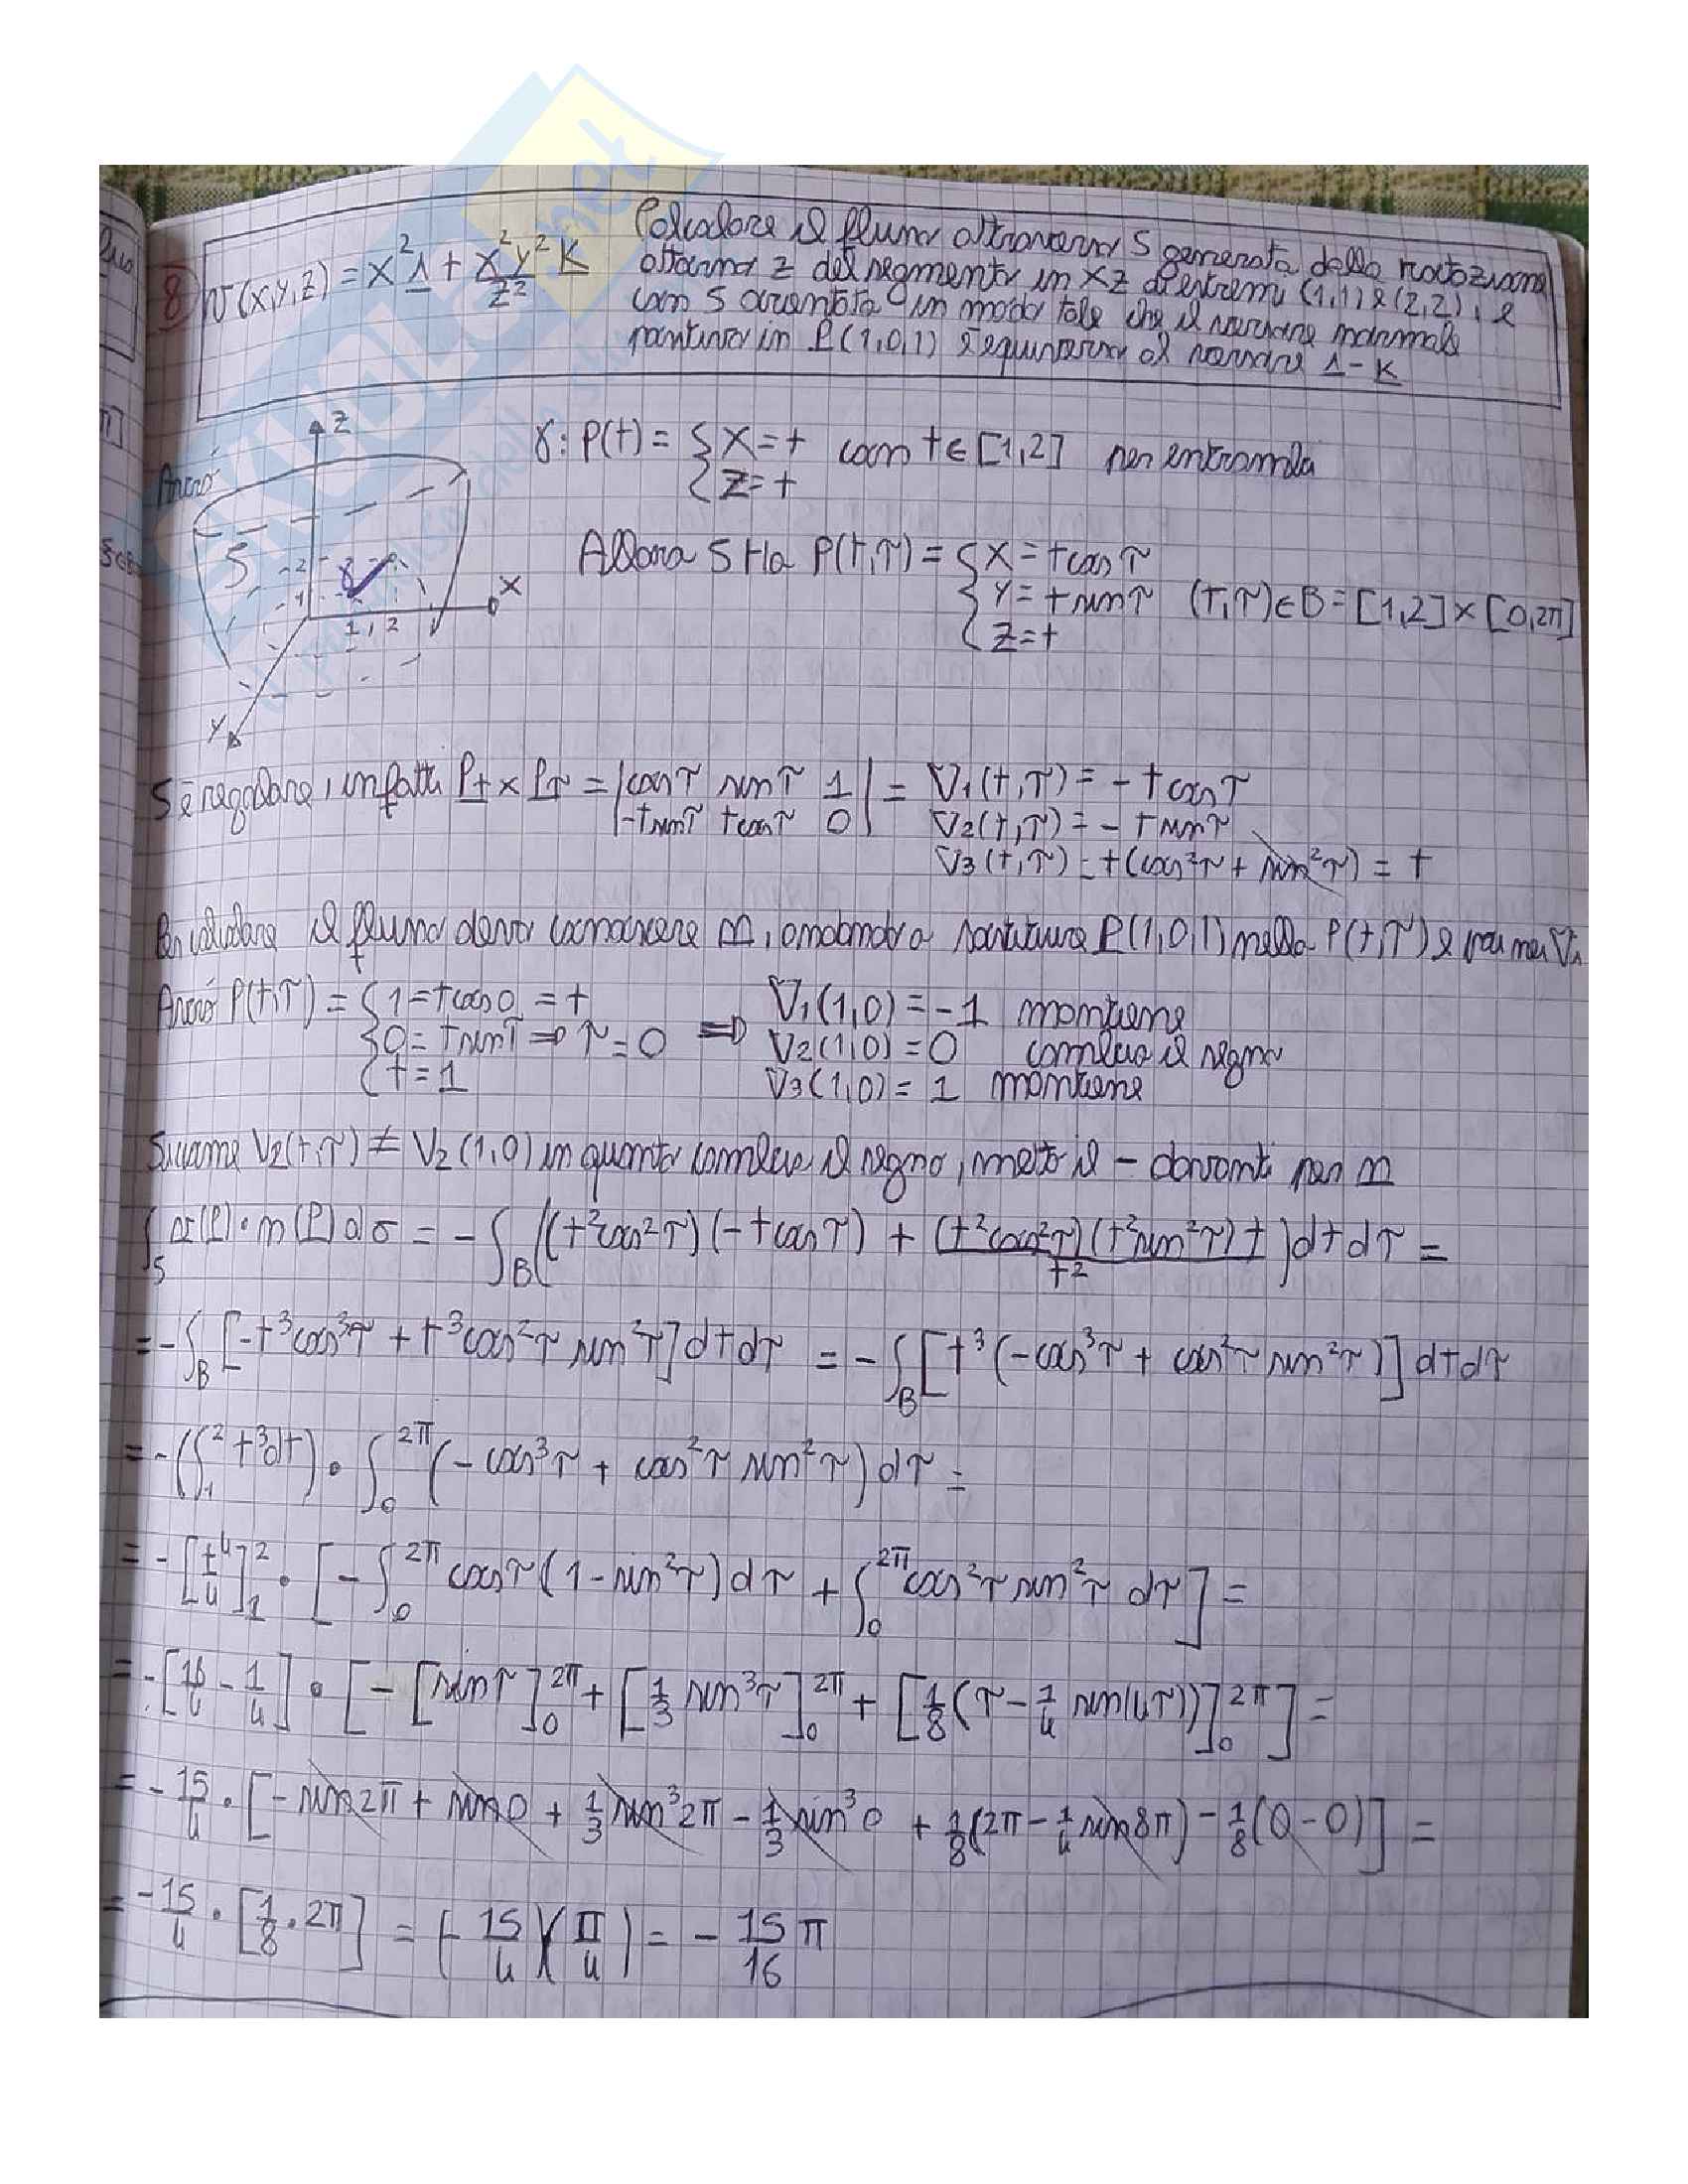 8) v(x,y,z) = x² i + x²y²/z² k
Calcolare il flusso attraverso S generata dalla rotazione
attorno z del segmento in xz d'estremi (1,1) e (2,2), e
con S orientata in modo tale che il versore normale
positivo in P(1,0,1) è equiverso al versore i - k
Z
Perciò
γ: P(t) = { x = t con t ∈ [1,2] per entrambi
{ z = t
S
2
γ
1
X
1, 2
Y
Allora S ha P(t,τ) = { x = t cosτ
{ y = t sinτ (t,τ) ∈ B = [1,2] × [0,2π]
{ z = t
S è regolare, infatti Pt × Pτ = | cosτ sinτ 1 | = V1(t,τ) = - t cosτ
| -t sinτ t cosτ 0 | V2(t,τ) = - t sinτ
V3(t,τ) = t(cos²τ + sin²τ) = t
Per calcolare il flusso devo conoscere n, andando a sostituire P(1,0,1) nella P(t,τ) e poi nei Vi
Perciò P(t,τ) = { 1 = t cos0 = t V1(1,0) = -1 mantiene
{ 0 = t sinτ ⇒ τ = 0 ⇒ V2(1,0) = 0 cambia il segno
{ t = 1 V3(1,0) = 1 mantiene
Siccome V2(t,τ) ≠ V2(1,0) in quanto cambia il segno, metto il - davanti per n
∫S v(P)·n(P) dσ = - ∫B ((t²cos²τ)(-t cosτ) + (t²cos²τ)(t²sin²τ) t / t²) dt dτ =
= - ∫B [-t³cos³τ + t³cos²τ sin²τ] dt dτ = - ∫B [t³(-cos³τ + cos²τ sin²τ)] dt dτ
= - (∫₁² t³dt) · ∫₀^2π (-cos³τ + cos²τ sin²τ) dτ =
= - [t⁴/4]₁² · [- ∫₀^2π cosτ(1 - sin²τ) dτ + ∫₀^2π cos²τ sin²τ dτ] =
= - [16/4 - 1/4] · [- [sinτ]₀^2π + [1/3 sin³τ]₀^2π + [1/8(τ - 1/4 sin(4τ))]₀^2π] =
= - 15/4 · [- sin2π + sin0 + 1/3 sin³2π - 1/3 sin³0 + 1/8(2π - 1/4 sin8π) - 1/8(0 - 0)] =
= - 15/4 · [1/8 · 2π] = (- 15/4)(π/4) = - 15/16 π